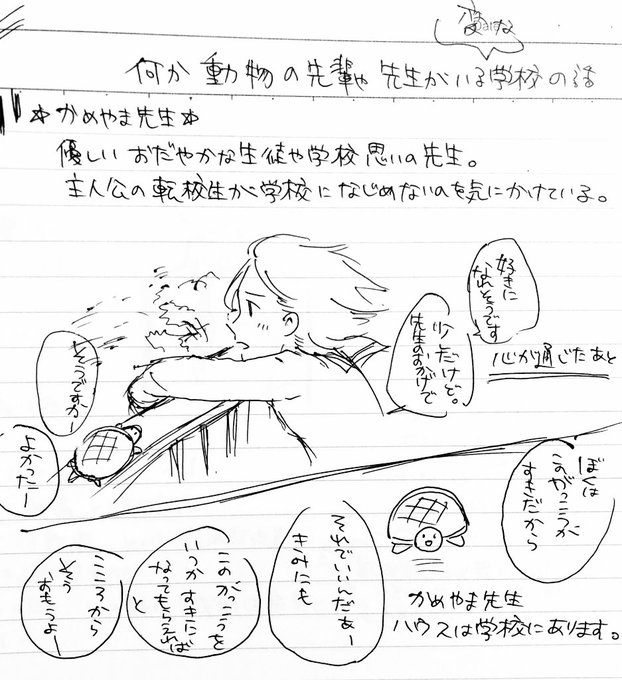 変な
何か動物の先輩や先生がいる学校の話
*かめやま先生*
優しいおだやかな生徒や学校思いの先生。
主人公の転校生が学校になじめないのを気にかけている。
好きに
なれそうです
少しだけど。
先生のおかげで
心が通じたあと
そうですかー
よかったー
ぼくは
このがっこうが
すきだから
それでいいんだぁー
きみにも
このがっこうを
いつかすきに
なってもらえれば
と
こころから
そう
おもうよー
かめやま先生
ハウスは学校にあります。